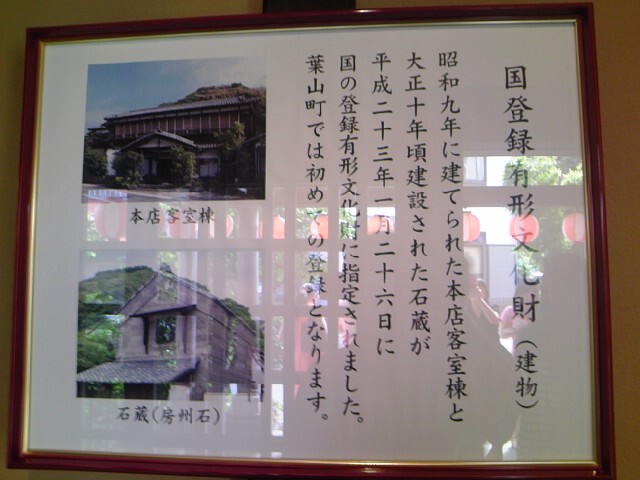 国登録有形文化財(建物)
昭和九年に建てられた本店客室棟と
大正十年頃建設された石蔵が
平成二十三年一月二十六日に
国の登録有形文化財に指定されました。
葉山町では初めての登録となります。
本店客室棟
石蔵(房州石)